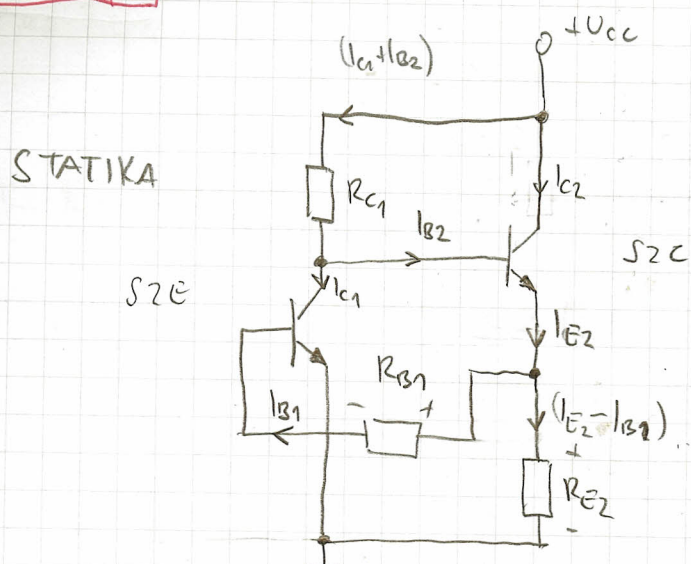 +UCC
(IC1+IB2)
STATIKA
RC1
IC2
IB2
SZC
SZE
IC1
IE2
RB1
IB1
- +
(IE2-IB1)
+
RE2
-